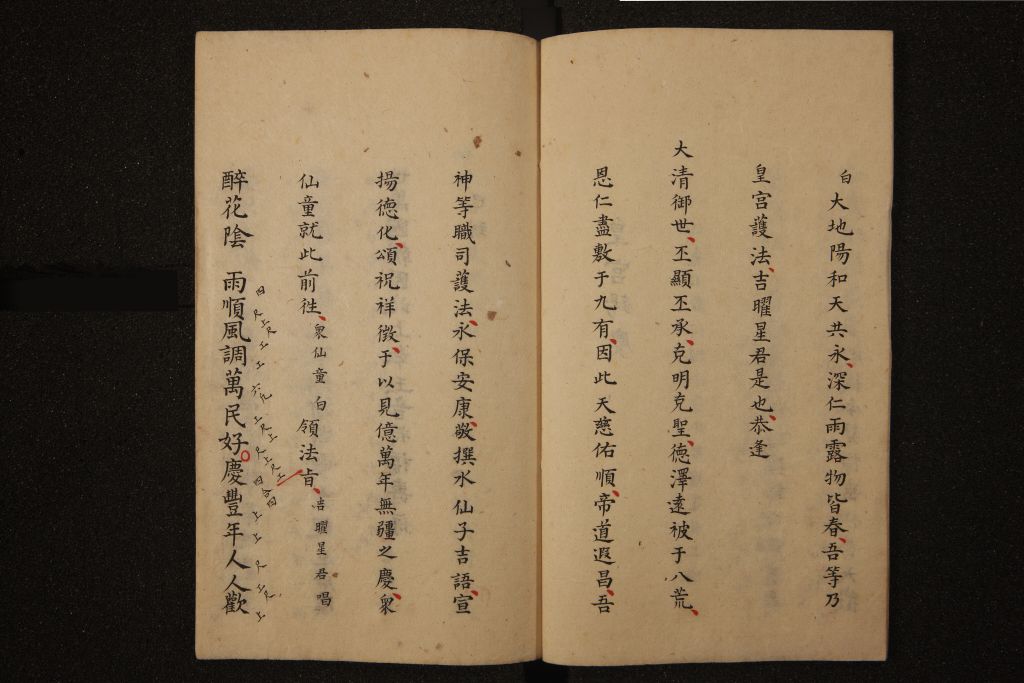 白 大地陽和天共永、深仁雨露物皆春、吾等乃
皇宮護法、吉曜星君是也、恭逢
大清御世、丕顯丕承、克明克聖、德澤遠被于八荒、
恩仁盡敷于九有、因此天慈佑順、帝道遐昌、吾
神等職司護法、永保安康、敬撰氷仙子吉語、宣
揚德化、頌祝祥徵、于以見億萬年無疆之慶、衆
仙童就此前徃、衆仙童白 領法旨、吉曜星君唱
醉花陰 雨順風調萬民好。慶豐年人人歡